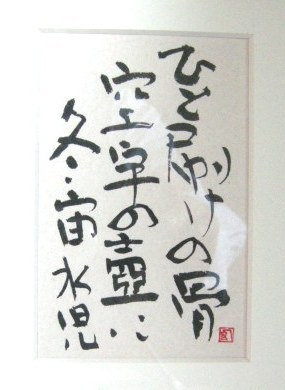 ひと刷けの骨
空の壺に
冬・宙水児